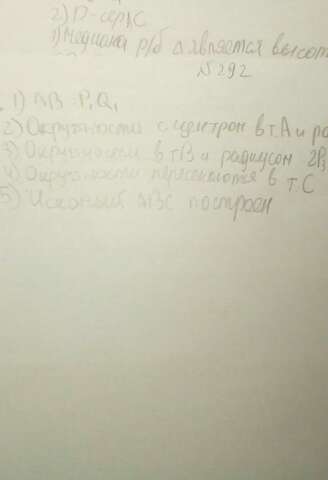 2) D - сер BC
1) Медиана р/б Δ является высот
N 292
1) AB = P₁Q₁
2) Окружности с центром в т.A и ра
3) Окружности в т.B и радиусом 2P₃
4) Окружности пересекаются в т.C
5) Искомый ABC построен